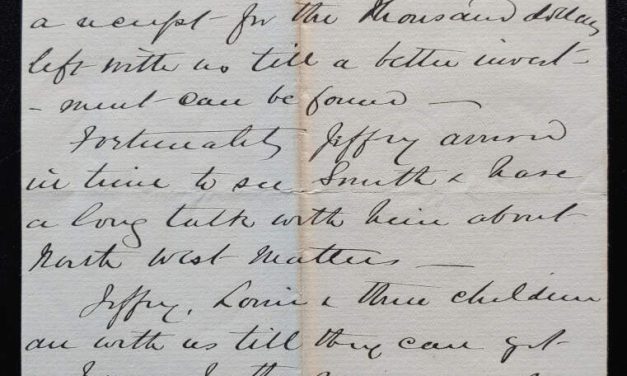 a receipt for the thousand dollars
left with us till a better invest-
-ment can be found —
Fortunately Jeffry arrived
in time to see Smith & have
a long talk with him about
North West Matters —
Jeffry, Lorne & three children
are with us till they can get